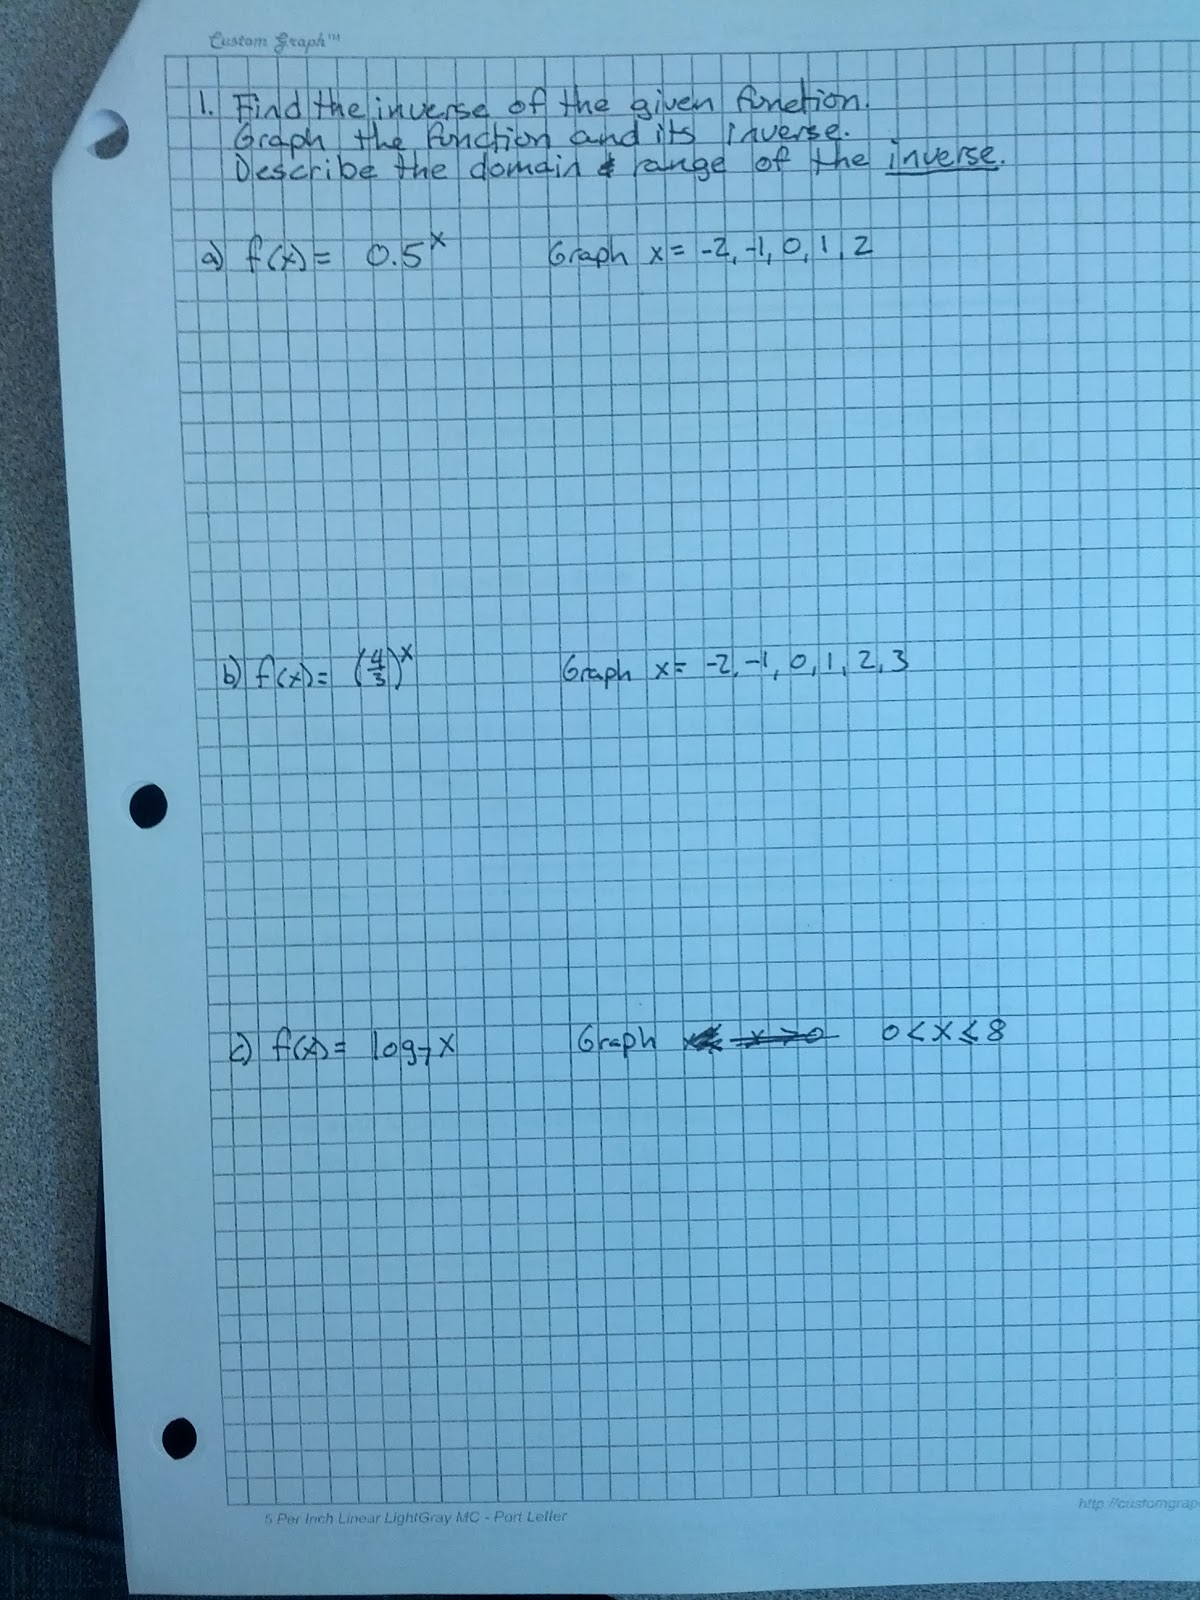 Custom Graph™
1. Find the inverse of the given function.
Graph the function and its inverse.
Describe the domain & range of the inverse.
a) f(x) = 0.5^x Graph x = -2, -1, 0, 1, 2
b) f(x) = (4/3)^x Graph x = -2, -1, 0, 1, 2, 3
c) f(x) = log₇x Graph 0 < x ≤ 8
5 Per Inch Linear LightGray MC - Port Letter
http://customgrap